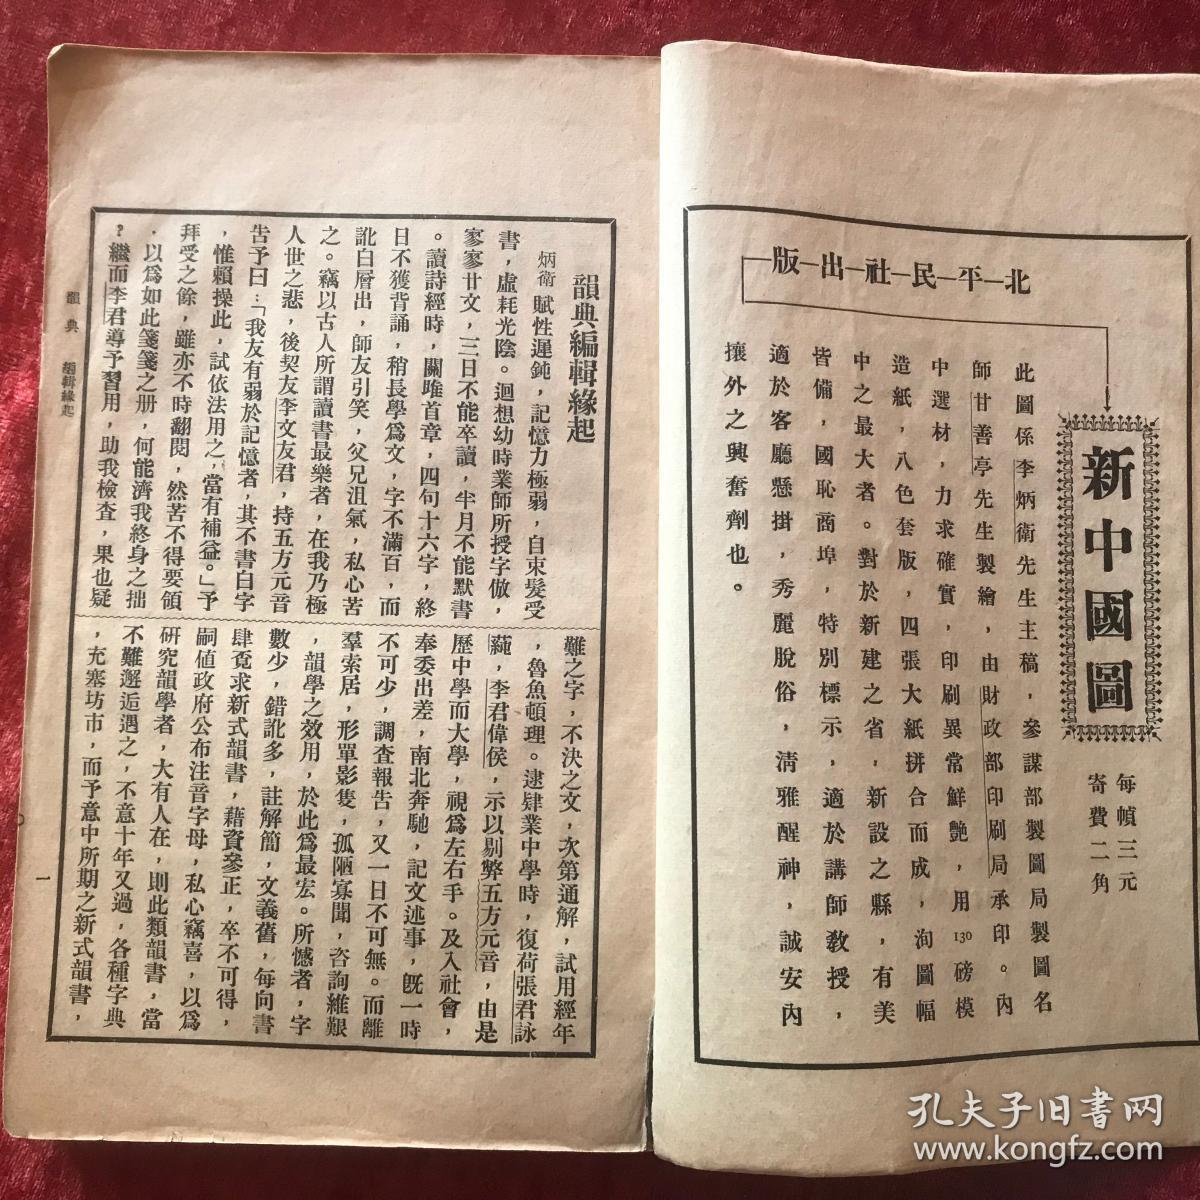 北平民社出版
新中國圖
每幀三元
寄費二角
此圖係李炳衛先生主稿，參謀部製圖局製圖名
師甘善亭先生製繪，由財政部印刷局承印。內
中選材，力求確實，印刷異常鮮艷，用130磅模
造紙，八色套版，四張大紙拼合而成，洵圖幅
中之最大者。對於新建之省，新設之縣，有美
皆備，國恥商埠，特別標示，適於講師教授，
適於客廳懸掛，秀麗脫俗，清雅醒神，誠安內
攘外之興奮劑也。
韻典編輯緣起
炳衛賦性遲鈍，記憶力極弱，自束髮受
書，虛耗光陰。迴想幼時業師所授字倣，
寥寥廿文，三日不能卒讀，半月不能默書
。讀詩經時，關雎首章，四句十六字，終
日不獲背誦，稍長學爲文，字不滿百，而
訛白層出，師友引笑，父兄沮氣，私心苦
之。竊以古人所謂讀書最樂者，在我乃極
人世之悲，後契友李文友君，持五方元音
告予曰：「我友有弱於記憶者，其不書白字
，惟賴操此，試依法用之，當有補益。」予
拜受之餘，雖亦不時翻閱，然苦不得要領
，以爲如此箋箋之册，何能濟我終身之拙
？繼而李君導予習用，助我檢查，果也疑
難之字，不決之文，次第通解，試用經年
，魯魚頓理。逮肄業中學時，復荷張君詠
蒓，李君偉侯，示以剔弊五方元音，由是
歷中學而大學，視爲左右手。及入社會，
奉委出差，南北奔馳，記文述事，旣一時
不可少，調查報告，又一日不可無。而離
羣索居，形單影隻，孤陋寡聞，咨詢維艱
，韻學之效用，於此爲最宏。所憾者，字
數少，錯訛多，註解簡，文義舊，每向書
肆覓求新式韻書，藉資參正，卒不可得，
嗣値政府公布注音字母，私心竊喜，以爲
研究韻學者，大有人在，則此類韻書，當
不難邂逅遇之，不意十年又過，各種字典
，充塞坊市，而予意中所期之新式韻書，
韻典 編輯緣起
一
孔夫子旧书网
www.kongfz.com